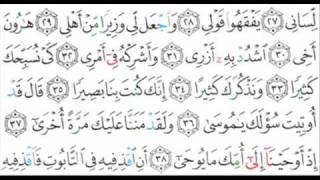 لِّسَانِى ٢٧ يَفْقَهُوا۟ قَوْلِى ٢٨ وَٱجْعَل لِّى وَزِيرًا مِّنْ أَهْلِى ٢٩ هَٰرُونَ
أَخِى ٣٠ ٱشْدُدْ بِهِۦٓ أَزْرِى ٣١ وَأَشْرِكْهُ فِىٓ أَمْرِى ٣٢ كَىْ نُسَبِّحَكَ
كَثِيرًا ٣٣ وَنَذْكُرَكَ كَثِيرًا ٣٤ إِنَّكَ كُنتَ بِنَا بَصِيرًا ٣٥ قَالَ قَدْ
أُوتِيتَ سُؤْلَكَ يَٰمُوسَىٰ ٣٦ وَلَقَدْ مَنَنَّا عَلَيْكَ مَرَّةً أُخْرَىٰٓ ٣٧
إِذْ أَوْحَيْنَآ إِلَىٰٓ أُمِّكَ مَا يُوحَىٰٓ ٣٨ أَنِ ٱقْذِفِيهِ فِى ٱلتَّابُوتِ فَٱقْذِفِيهِ